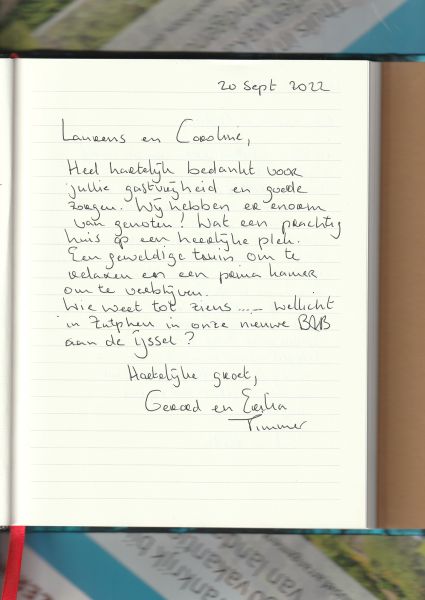 20 sept 2022
Laurens en Caroline,
Heel hartelijk bedankt voor
jullie gastvrijheid en goede
zorgen. Wij hebben er enorm
van genoten! Wat een prachtig
huis op een heerlijke plek.
Een geweldige tuin om te
relaxen en een prima kamer
om te verblijven.
Wie weet tot ziens ..... wellicht
in Zutphen in onze nieuwe B&B
aan de Ijssel?
Hartelijke groet,
Gerard en
Timmer